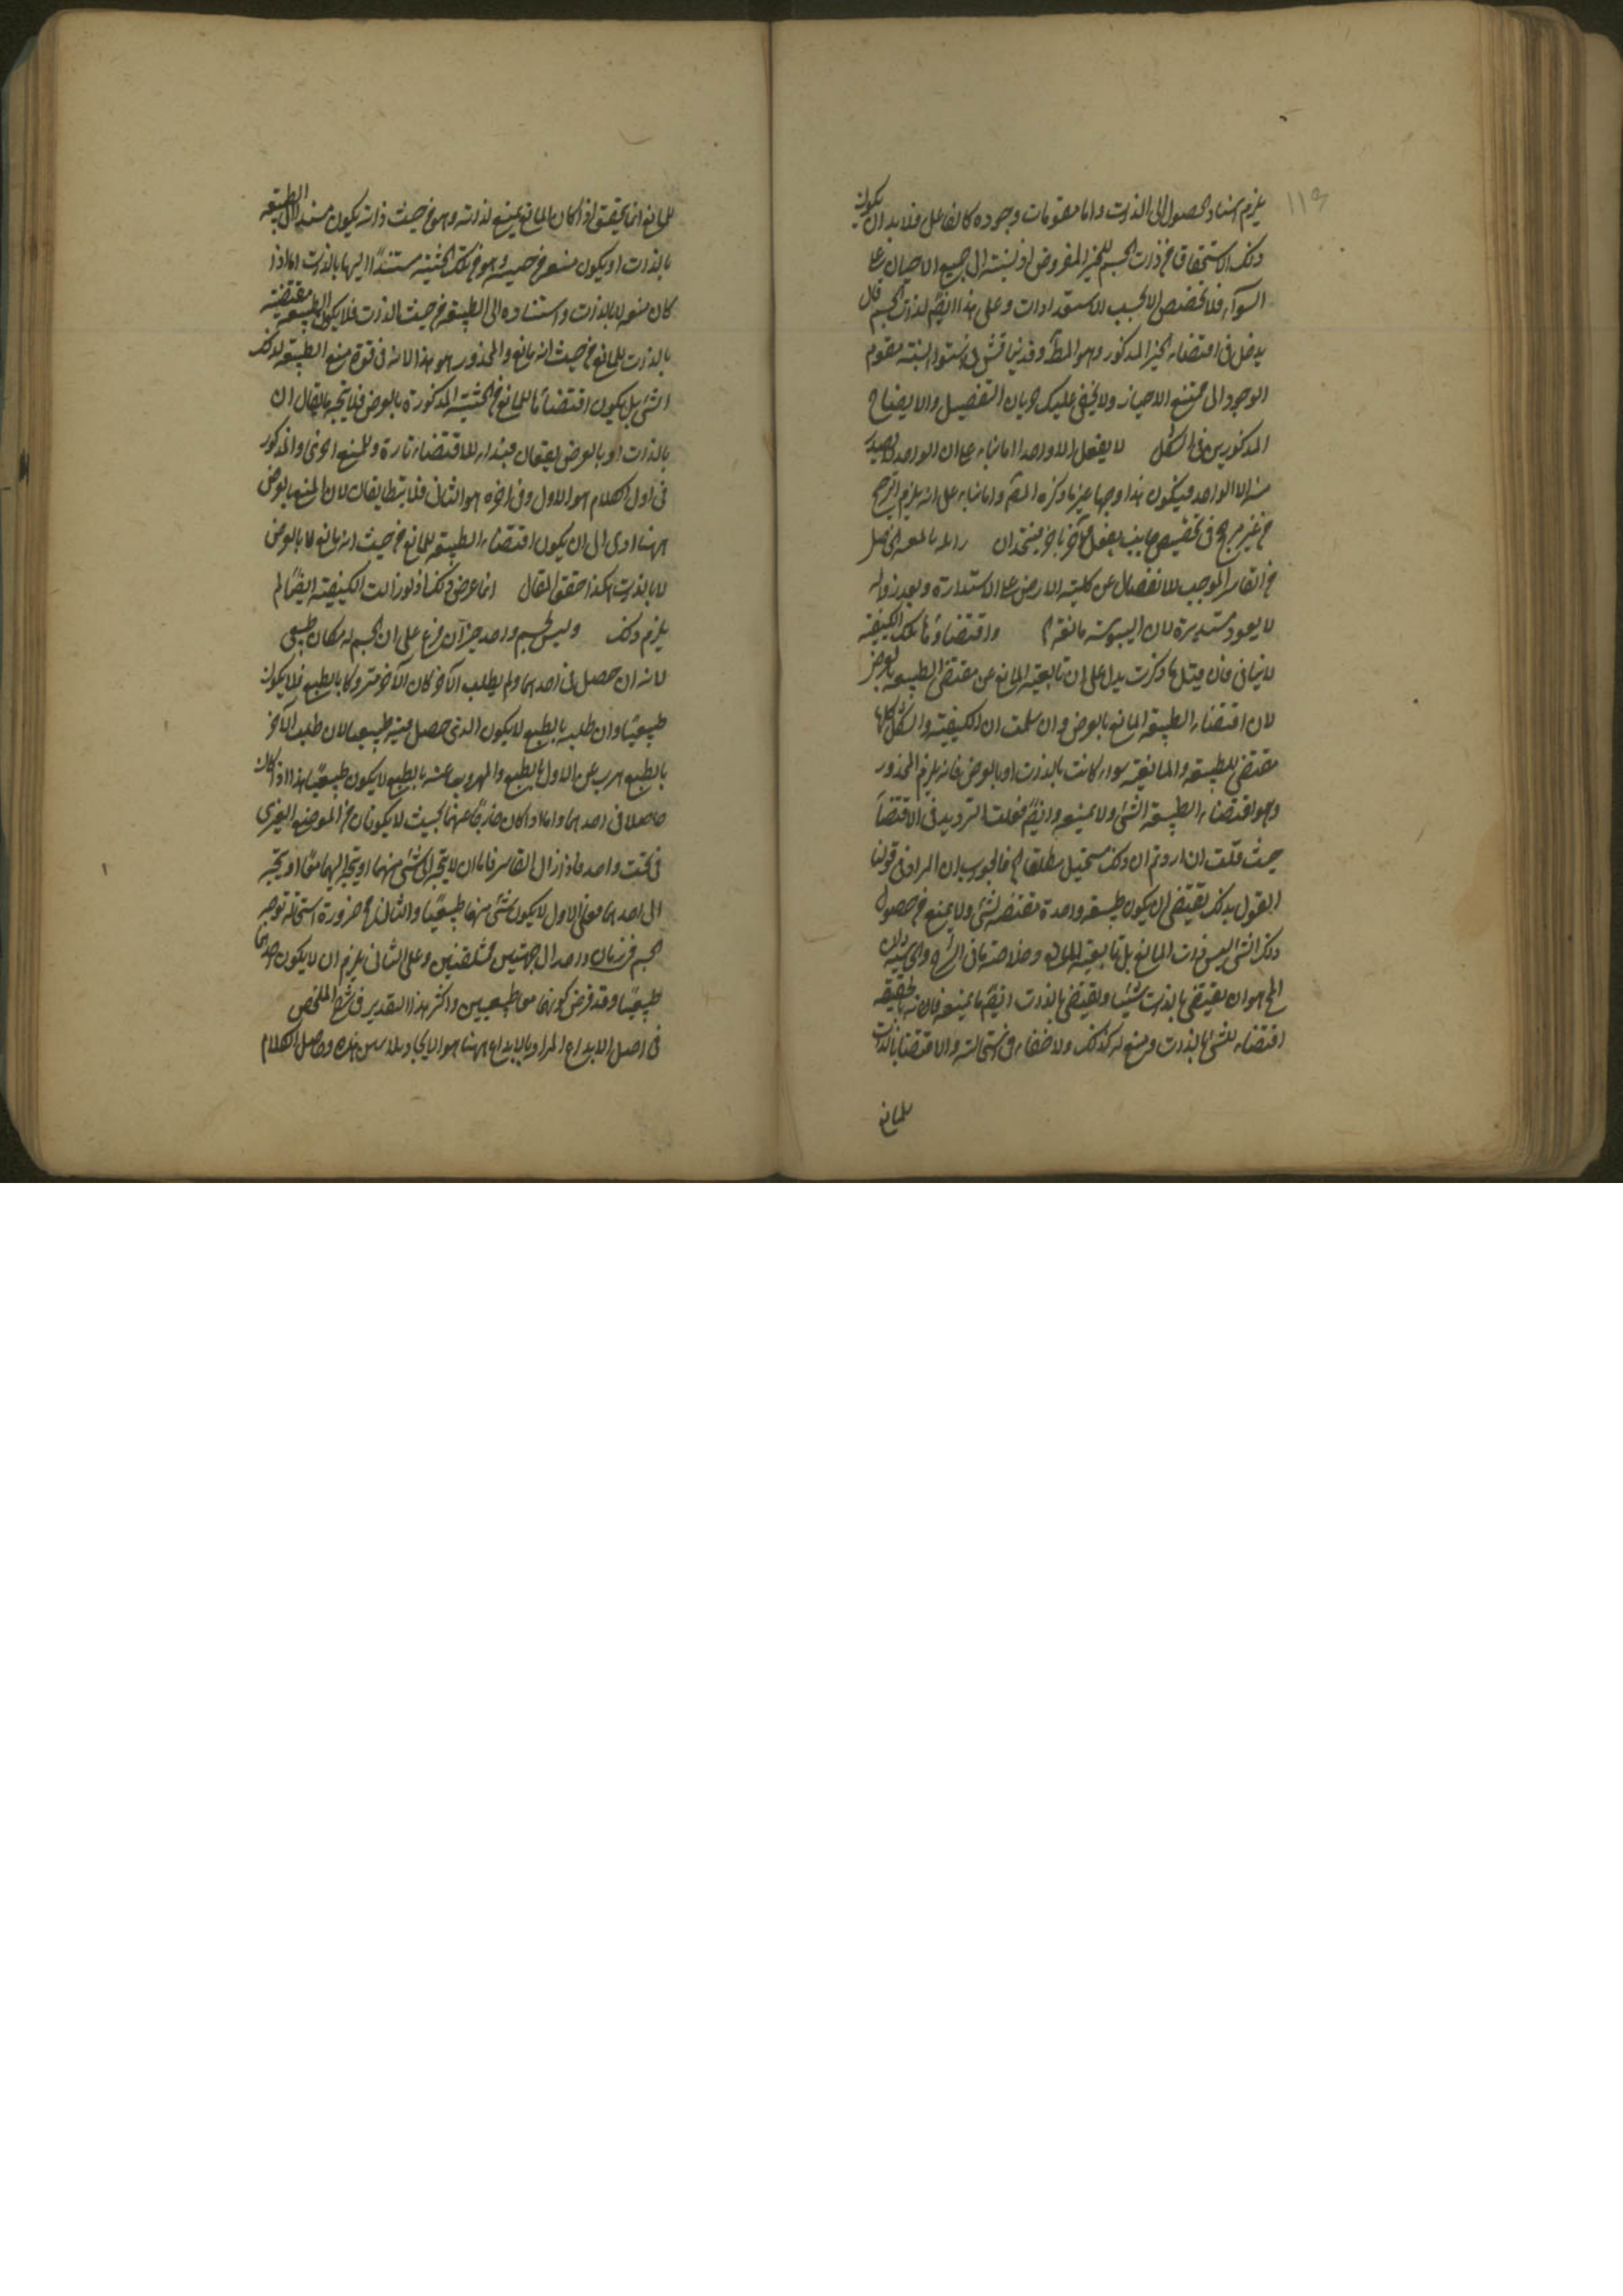 يلزم اسناد الحصول الى الذات واما مقومات وجوده كالفاعل فلا بد ان يكون
ذلك الاستحقاق من ذات الجسم للحيز المفروض اذ نسبته الى جميع الاحيان على
السواء فلا تخصص الا بحسب الاستعدادات وعلى هذا ايضا لذات الجسم قال
يدخل في اقتضاء الحيز المذكور وهو المط وقد يناقش في استواء نسبته مقوم
الوجود الى جميع الاحياز ولا يخفى عليك جريان التفصيل والايضاح
المذكورين في الشكل لا يفعل الا واحدا اما بناء على ان الواحد لا يصدر
منه الا الواحد فيكون هذا وجها غير ما ذكره المص واما بناء على انه يلزم الترجيح
من غير مرجح في تخصيص جانب بفعل وآخر بآخر فيتحدان
من القاسر الموجب للانفصال عن كلية الارض على الاستدارة وبعد زواله
لا يعود مستديرة لان اليبوسة مانعة واقتضاؤها تلك الكيفية
لا ينافي فان قيل ما ذكرت يدل على ان تابعية المانع عن مقتضى الطبيعة بالعرض
لان اقتضاء الطبيعة المانع بالعرض وان سلمت ان الكيفية والشكل كلها
مقتضى للطبيعة والمانعية سواء كانت بالذات او بالعرض فانه يلزم المحذور
وهو اقتضاء الطبيعة الشئ ولا يمنعه وايضا فعلت الترديد في الاقتضا
حيث قلت ان اردتم ان ذلك مستحيل مطلقا فالجواب ان المراد في قولنا
القول بذلك يقتضي ان يكون طبيعة واحدة مقتضية لشئ ولا يمنع من حصول
ذلك الشئ ليس ذات المانع بل تابعيته للمانع وخلاصة ما في الشرح والحاشية ان
المح هو ان يقتضي بالذات شيئا ويقتضي بالذات ايضا ما يمنعه فانه بالحقيقة
اقتضاء للشئ بالذات ومنع له كذلك ولا خفاء في استحالته والاقتضا بالذات
للمانع
للمانع انما يتحقق اذا كان المانع يمنع لذاته وهو من حيث ذاته يكون مستندا الى الطبيعة
بالذات او يكون منعه من حيثية وهو من تلك الحيثية مستندا اليها بالذات اما اذا
كان منعه لا بالذات واستناده الى الطبيعة من حيث الذات فلا يكون الطبيعة مقتضية
بالذات للمانع من حيث انه مانع والمحذور هو هذا لانه في قوة منع الطبيعة لذلك
الشئ بل يكون اقتضاؤها للمانع من الحيثية المذكورة بالعرض فلا يتجه ما يقال ان
بالذات او بالعرض يقال فيه للاقتضاء تارة وللمنع اخرى والمذكور
في اول الكلام هو الاول وفي آخره هو الثاني فلا يتطابقان لان المنع بالعرض
ههنا ادى الى ان يكون اقتضاء الطبيعة للمانع من حيث انه مانع بالعرض
لا بالذات هكذا حقق المقال انما عرض ذلك اذ لو زالت الكيفية ايضا لم
يلزم ذلك وليس لجسم واحد حيزان فرع على ان الجسم له مكان طبيعي
لانه ان حصل في احدهما ولم يطلب الآخر كان الآخر متروكا بالطبع فلا يكون
طبيعيا وان طلبه بالطبع لا يكون الذي حصل فيه طبيعيا لان طلب الآخر
بالطبع هرب عن الاول بالطبع والمهروب عنه بالطبع لا يكون طبيعيا هذا اذا كان
حاصلا في احدهما واما اذا كان خارجا عنهما بحيث لا يكونان من الموضع الغيرى
في سمت واحد فاذا زال القاسر فاما ان لا يتجه الى شئ منهما او يتجه اليهما معا او يتجه
الى احدهما فعلى الاول لا يكون شئ منهما طبيعيا والثاني مح ضرورة استحالة توجه
الجسم في زمان واحد الى جهتين مختلفتين وعلى الثاني يلزم ان لا يكون احدهما
طبيعيا وقد فرض كونهما معا طبيعيين واكثر هذا التقدير في شرح الملخص
في اصل الابداع المراد بالابداع ههنا هو الايجاد بلا سبق مادة وحاصل الكلام